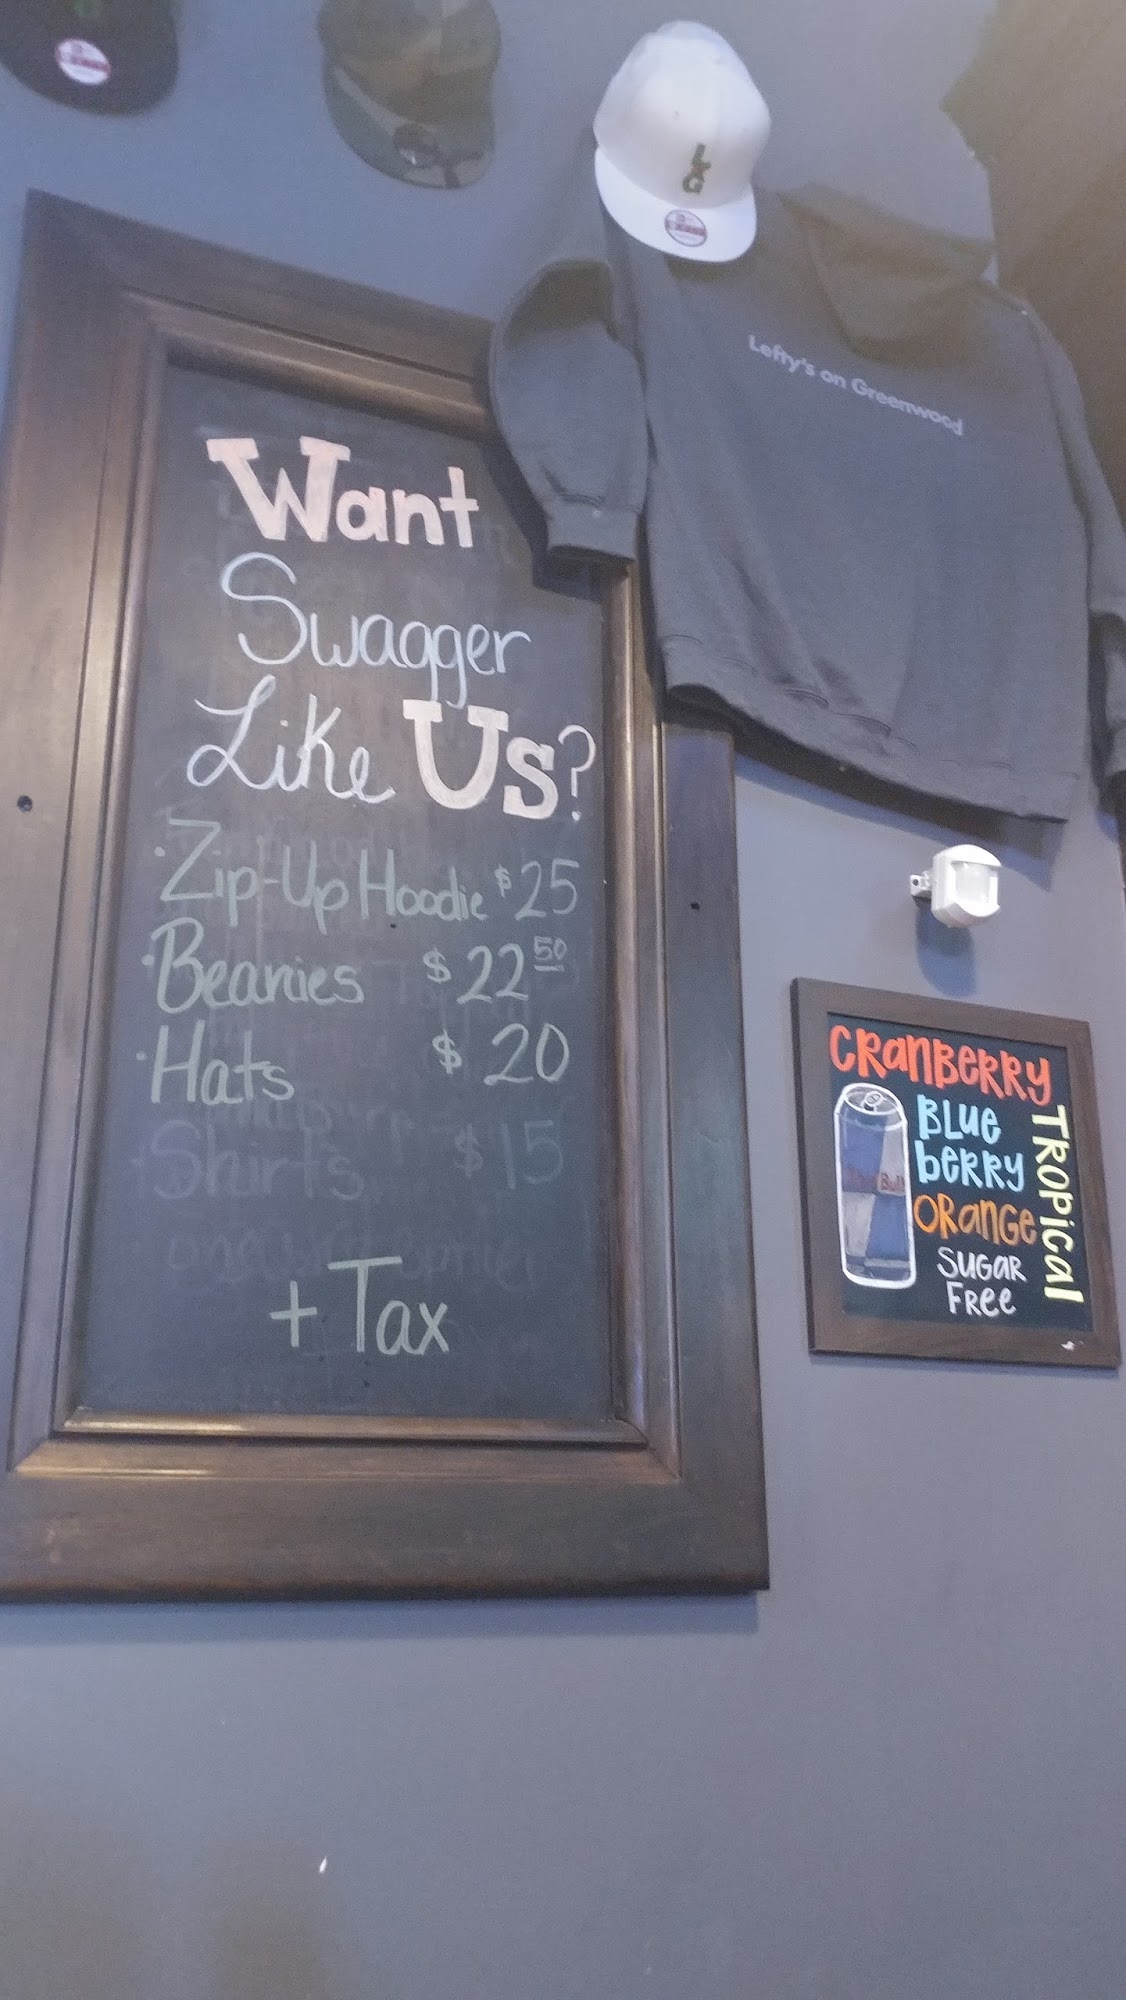 Lefty's on Greenwood
Want
Swagger
Like Us?
· Zip-Up Hoodie $25
· Beanies $22 50
· Hats $20
Shirts $15
+ Tax
CRANBERRY
BLUE
BERRY
ORANGE
SUGAR
FREE
TROPICAL